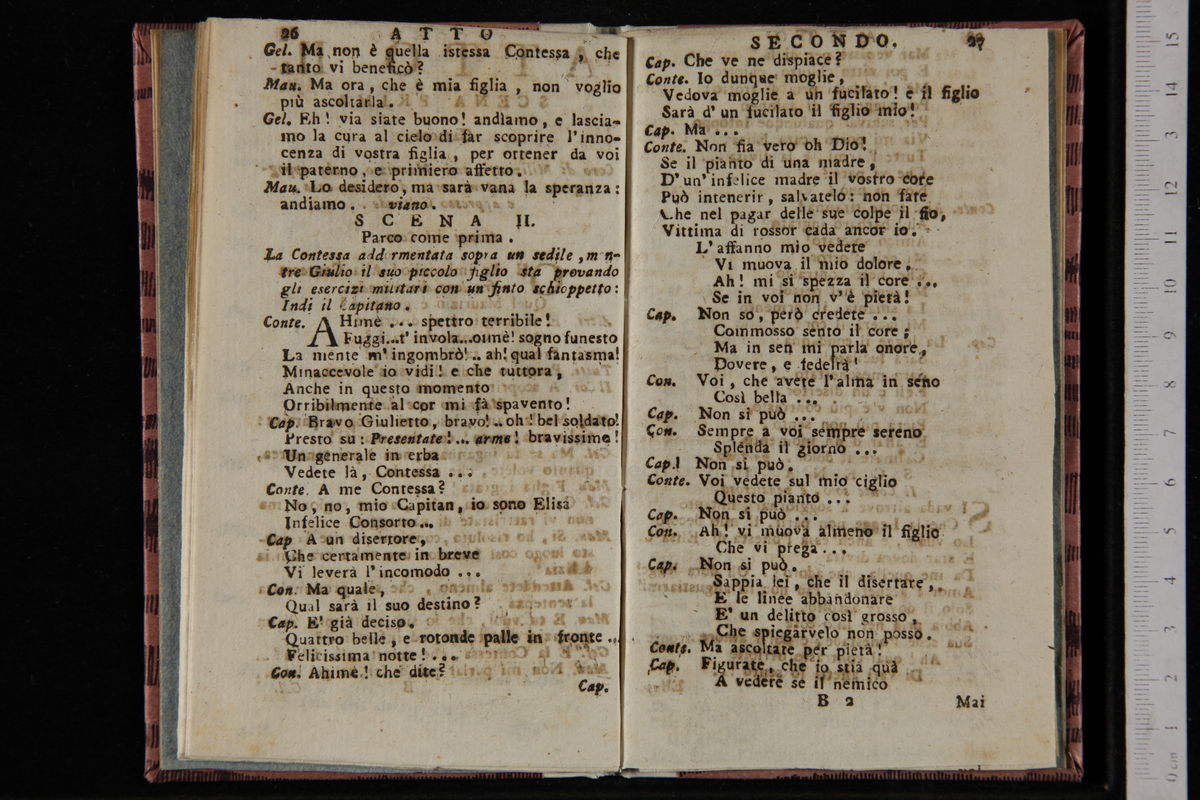 26 ATTO
Gel. Ma non è quella istessa Contessa, che
tanto vi beneficò?
Mau. Ma ora, che è mia figlia, non voglio
più ascoltarla.
Gel. Eh! via siate buono! andiamo, e lascia-
mo la cura al cielo di far scoprire l'inno-
cenza di vostra figlia, per ottener da voi
il paterno, e primiero affetto.
Mau. Lo desidero, ma sarà vana la speranza:
andiamo. viano.
SCENA II.
Parco come prima.
La Contessa add rmentata sopra un sedile, m n-
tre Giulio il suo piccolo figlio sta provando
gli esercizi militari con un finto schioppetto:
Indi il Capitano.
Conte. AHimè ... spettro terribile!
Fuggi...t' invola...oimè! sogno funesto
La mente m' ingombrò!.. ah! qual fantasma!
Minaccevole io vidi! e che tuttora,
Anche in questo momento
Orribilmente al cor mi fà spavento!
Cap. Bravo Giulietto, bravo!.. oh! bel soldato!
Presto su: Presentate!... arme! bravissimo!
Un generale in erba
Vedete là, Contessa ...
Conte. A me Contessa?
No, no, mio Capitan, io sono Elisa
Infelice Consorto...
Cap A un disertore,
Che certamente in breve
Vi leverà l' incomodo ...
Con. Ma quale,
Qual sarà il suo destino?
Cap. E' già deciso.
Quattro belle, e rotonde palle in fronte ...
Felicissima notte! ...
Con. Ahimè! che dite?
Cap.
SECONDO. 27
Cap. Che ve ne dispiace?
Conte. Io dunque moglie,
Vedova moglie a un fucilato! e il figlio
Sarà d' un fucilato il figlio mio!
Cap. Ma ...
Conte. Non fia vero oh Dio!
Se il pianto di una madre,
D' un' infelice madre il vostro core
Può intenerir, salvatelo: non fate
Che nel pagar delle sue colpe il fio,
Vittima di rossor cada ancor io.
L' affanno mio vedete
Vi muova il mio dolore,
Ah! mi si spezza il core ...
Se in voi non v' è pietà!
Cap. Non so, però credete ...
Commosso sento il core;
Ma in sen mi parla onore,
Dovere, e fedeltà!
Con. Voi, che avete l' alma in seno
Così bella ...
Cap. Non si può ...
Con. Sempre a voi sempre sereno
Splenda il giorno ...
Cap. Non si può.
Conte. Voi vedete sul mio ciglio
Questo pianto ...
Cap. Non si può ...
Con. Ah! vi muova almeno il figlio
Che vi prega ...
Cap. Non si può.
Sappia lei, che il disertare,
E le linee abbandonare
E' un delitto così grosso,
Che spiegarvelo non posso.
Conte. Ma ascoltate per pietà!
Cap. Figurate, che io stia quà
A vedere se il nemico
B 2 Mai